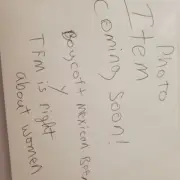 Photo
Item
Coming Soon!
Boycott mexican Beer
y
TFM is right
about women